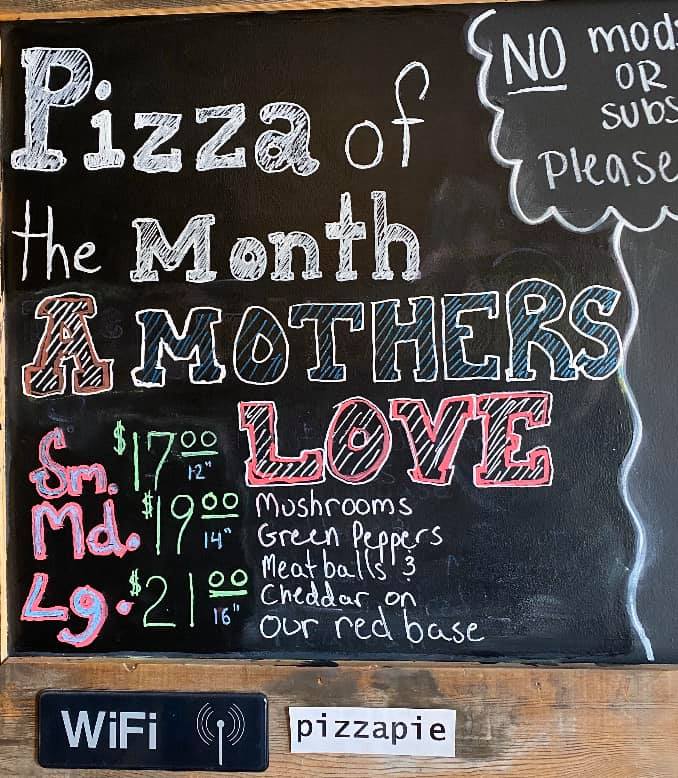 Pizza of
the Month
A MOTHERS
LOVE
Sm. $17 00 12"
Md. $19 00 14"
Lg. $21 00 16"
Mushrooms
Green Peppers
Meatballs &
Cheddar on
our red base
NO
OR
Please
WiFi
pizzapie